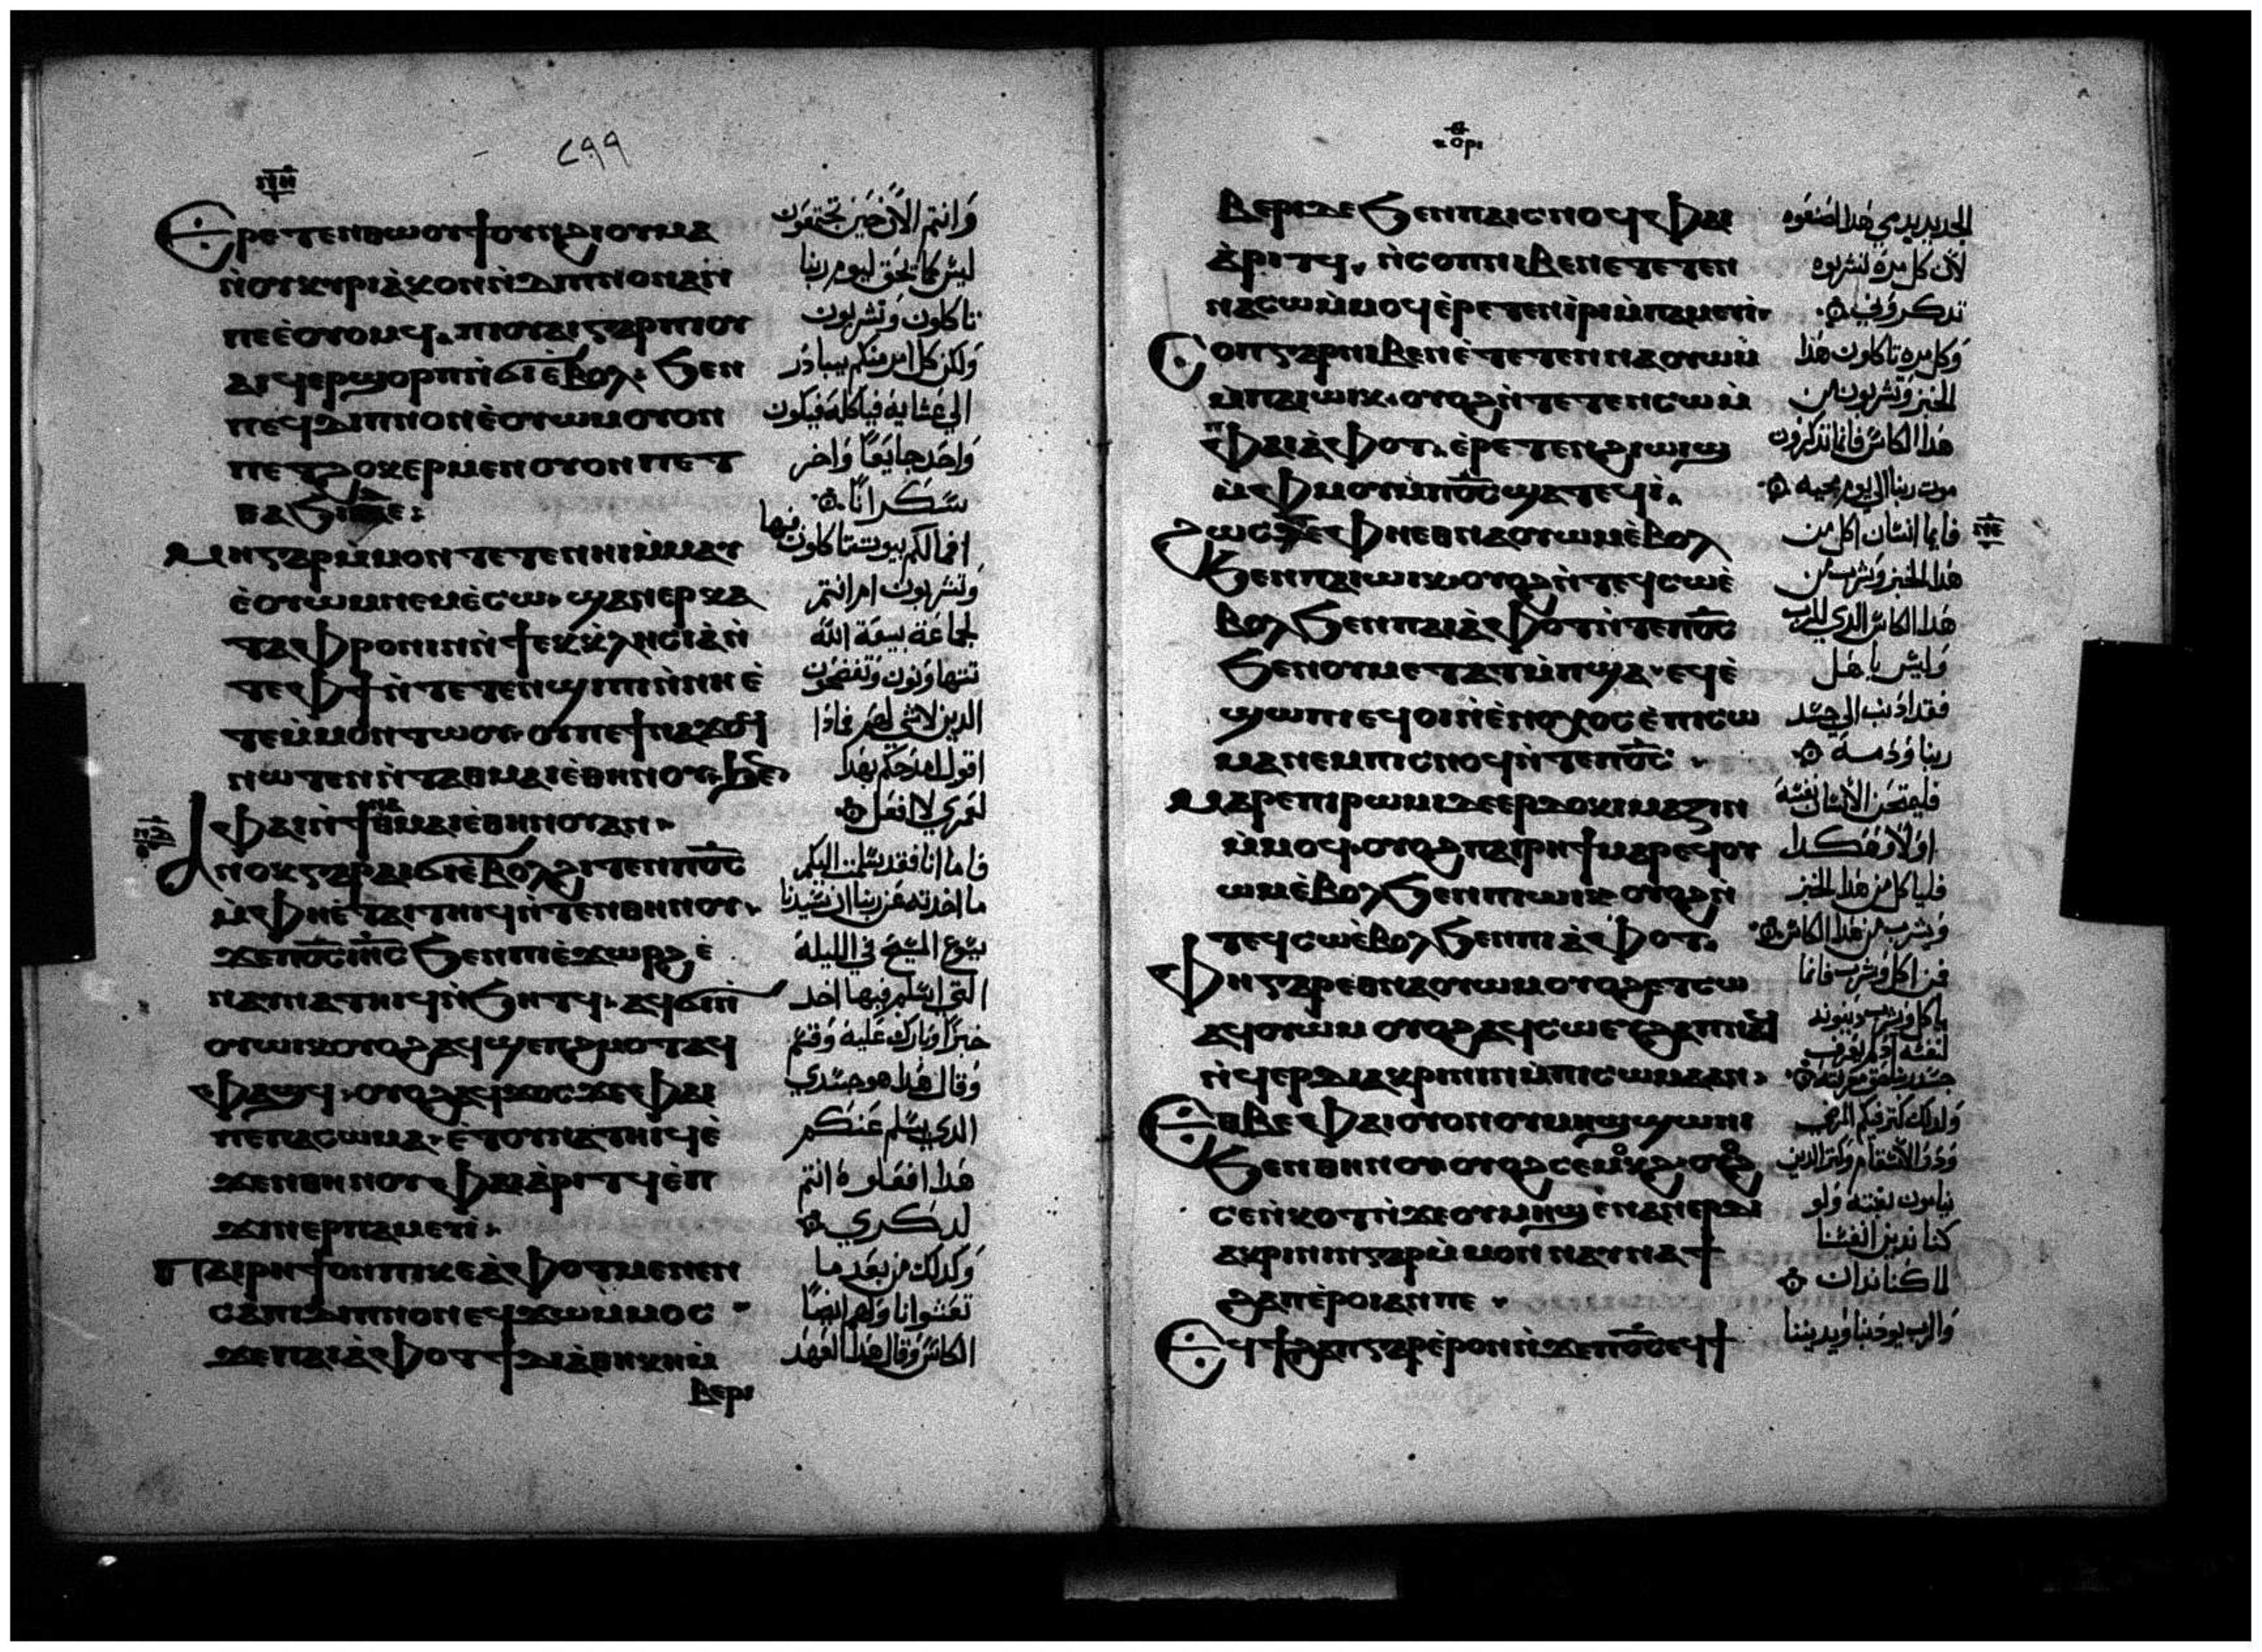 ٢٩٩
Ⲉⲣⲉⲧⲉⲛⲑⲱⲟⲩϯ ⲟⲩⲛ ϩⲓ ⲟⲩⲙⲁ
ⲛ̀ⲟⲩⲕⲩⲣⲓⲁⲕⲟⲛ ⲛ̀ⲇⲓⲡⲛⲟⲛ ⲁⲛ
ⲡⲉ ⲉ̀ⲟⲩⲟⲙϥ. ⲡⲓⲟⲩⲁⲓ ⲅⲁⲣ ⲡⲓⲟⲩ
ⲁⲓ ϥⲉⲣϣⲟⲣⲡ ⲛ̀ϭⲓ ⲉ̀ⲃⲟⲗ: ϧⲉⲛ
ⲡⲉϥⲇⲓⲡⲛⲟⲛ ⲉ̀ⲟⲩⲱⲙ ⲟⲩⲟⲛ
ⲡⲉⲧϩⲟⲕⲉⲣ ⲙⲉⲛ ⲟⲩⲟⲛ ⲡⲉⲧ
ⲙⲏ ⲅⲁⲣ ⲙ̀ⲙⲟⲛ ⲧⲉⲧⲉⲛ ⲏⲓ ⲙ̀ⲙⲁⲩ
ⲉ̀ⲟⲩⲱⲙ ⲛⲉⲙ ⲉ̀ⲥⲱ. ϣⲁⲛ ⲉⲣⲕⲁ
ⲧⲁⲫⲣⲟⲛⲓⲛ ⲛ̀ϯⲉⲕⲕⲗⲏⲥⲓⲁ ⲛ̀
ⲧⲉ ⲫϯ ⲛ̀ⲧⲉⲧⲉⲛϣⲓⲡⲓ ⲛ̀ⲛⲏ ⲉ̀
ⲧⲉ ⲙ̀ⲙⲟⲛ ⲧⲱⲟⲩ. ⲟⲩ ⲡⲉ ϯⲛⲁϫⲟϥ
ⲛⲱⲧⲉⲛ ⲛ̀ⲧⲁⲑⲙⲁⲓⲉ̀ ⲑⲏⲛⲟⲩ. ϧⲉⲛ
ⲫⲁⲓ ⲛ̀ϯⲛⲁⲑⲙⲁⲓⲉ̀ ⲑⲏⲛⲟⲩ ⲁⲛ.
Ⲁⲛⲟⲕ ⲅⲁⲣ ⲁⲓϭⲓ ⲉ̀ⲃⲟⲗ ϩⲓⲧⲉⲛ ⲡⲟ̅ⲥ̅
ⲙ̀ⲫⲏ ⲉ̀ⲧⲁⲓⲧⲏⲓϥ ⲛ̀ⲧⲉⲛⲑⲏⲛⲟⲩ.
ϫⲉ ⲡⲟ̅ⲥ̅ ⲓⲏ̅ⲥ̅ ϧⲉⲛ ⲡⲓⲉ̀ϫⲱⲣϩ ⲉ̀
ⲛⲁⲩⲛⲁⲧⲏⲓϥ ⲛ̀ϧⲏⲧϥ. ⲁϥϭⲓ ⲛ̀
ⲟⲩⲱⲓⲕ ⲟⲩⲟϩ ⲁϥϣⲉⲡϩⲙⲟⲧ ⲁϥ
ⲫⲁϣϥ: ⲟⲩⲟϩ ⲁϥϫⲟⲥ ϫⲉ ⲫⲁⲓ
ⲡⲉ ⲡⲁⲥⲱⲙⲁ. ⲉ̀ⲧⲟⲩⲛⲁⲧⲏⲓϥ ⲉ̀
ϫⲉⲛ ⲑⲏⲛⲟⲩ ⲫⲁⲓ ⲁ̀ⲣⲓⲧϥ ⲉ̀ⲡ
ϫⲓⲛⲉⲣⲡⲁⲙⲉⲩⲓ̀.
Ⲡⲁⲓⲣⲏϯ ⲟⲛ ⲡⲓⲕⲉⲁ̀ⲫⲟⲧ ⲙⲉⲛⲉⲛ
ⲥⲁ ⲡⲓⲇⲓⲡⲛⲟⲛ ⲉϥϫⲱ ⲙ̀ⲙⲟⲥ
ϫⲉ ⲡⲁⲓⲁ̀ⲫⲟⲧ ϯⲇⲓⲁ̀ⲑⲏⲕⲏ ⲙ̀
ⲃⲉⲣⲓ
وانتم الان حين تجتمعون
ليس كما تحق ليوم ربنا
تاكلون وتشربون
ولكن كل امر منكم يبادر
الي عشايه فياكله فيكون
واحد جايعا واخر
سكرانا
افمالكم بيوت تاكلون فيها
وتشربون ام انتم
لجماعة بيعة الله
تتهاونون وتفضحون
الدين لا شي لهم فماذا
اقول امدحكم بهذا
لعمري لا افعل
فاما انا فقد سلمت اليكم
ما اخدته من ربنا ان سيدنا
يسوع المسيح في الليلة
التي اسلم فيها اخد
خبزا وبارك عليه وقسم
وقال هدا هو جسدي
الدي يسلم عنكم
هدا افعلوه انتم
لدكري
وكدلك من بعد ما
تعشوا ناولهم ايضا
الكاس وقال هدا العهد
ⲃⲉⲣⲓ ⲇⲉ ϧⲉⲛ ⲡⲁⲓⲥⲛⲟϥ ⲫⲁⲓ
ⲁ̀ⲣⲓⲧϥ. ⲛ̀ⲥⲟⲡ ⲛⲓⲃⲉⲛ ⲉⲧⲉⲧⲉⲛ
ⲛⲁⲥⲱ ⲙ̀ⲙⲟϥ ⲉ̀ⲣⲉⲧⲉⲛⲓ̀ⲣⲓ ⲙ̀ⲡⲁⲙⲉⲩⲓ̀
Ⲥⲟⲡ ⲅⲁⲣ ⲛⲓⲃⲉⲛ ⲉ̀ⲧⲉⲧⲉⲛⲛⲁⲟⲩⲱⲙ
ⲙ̀ⲡⲁⲓⲱⲓⲕ. ⲟⲩⲟϩ ⲛ̀ⲧⲉⲧⲉⲛⲥⲱ ⲙ̀
ⲡⲁⲓⲁ̀ⲫⲟⲧ. ⲉ̀ⲣⲉⲧⲉⲛϩⲓⲱⲓϣ
ⲙ̀ⲫⲙⲟⲩ ⲙ̀ⲡⲟ̅ⲥ̅ ϣⲁⲧⲉϥⲓ̀.
Ϩⲱⲥⲇⲉ ⲫⲏ ⲉⲑⲛⲁⲟⲩⲱⲙ ⲉ̀ⲃⲟⲗ
ϧⲉⲛ ⲡⲁⲓⲱⲓⲕ. ⲟⲩⲟϩ ⲛ̀ⲧⲉϥⲥⲱ ⲉ̀
ⲃⲟⲗ ϧⲉⲛ ⲡⲁⲓⲁ̀ⲫⲟⲧ ⲛ̀ⲧⲉ ⲡⲟ̅ⲥ̅
ϧⲉⲛ ⲟⲩⲙⲉⲧⲁⲧⲙ̀ⲡϣⲁ. ⲉϥⲉ̀
ϣⲱⲡⲓ ⲉϥⲟⲓ ⲛ̀ⲉ̀ⲛⲟⲭⲟⲥ ⲉ̀ⲡⲓⲥⲱ
ⲙⲁ ⲛⲉⲙ ⲡⲓⲥⲛⲟϥ ⲛ̀ⲧⲉ ⲡⲟ̅ⲥ̅.
Ⲙⲁⲣⲉ ⲡⲓⲣⲱⲙⲓ ⲇⲉ ⲉⲣⲇⲟⲕⲓⲙⲁⲍⲓⲛ
ⲙ̀ⲙⲟϥ. ⲟⲩⲟϩ ⲡⲁⲓⲣⲏϯ ⲙⲁⲣⲉϥⲟⲩ
ⲱⲙ ⲉ̀ⲃⲟⲗ ϧⲉⲛ ⲡⲓⲱⲓⲕ. ⲟⲩⲟϩ ⲛ̀
ⲧⲉϥⲥⲱ ⲉ̀ⲃⲟⲗ ϧⲉⲛ ⲡⲓⲁ̀ⲫⲟⲧ.
Ⲫⲏ ⲅⲁⲣ ⲉⲑⲛⲁⲟⲩⲱⲙ ⲟⲩⲟϩ ⲉⲧⲥⲱ
ⲁϥⲟⲩⲱⲙ ⲟⲩⲟϩ ⲁϥⲥⲱ
ⲛ̀ϥⲉⲣⲇⲓⲁⲕⲣⲓⲛⲓⲛ ⲙ̀ⲡⲓⲥⲱⲙⲁ ⲁⲛ.
Ⲉⲑⲃⲉ ⲫⲁⲓ ⲟⲩⲟⲛ ⲟⲩⲙⲏϣ ϣⲱⲛⲓ
ϧⲉⲛ ⲑⲏⲛⲟⲩ ⲟⲩⲟϩ ⲥⲉⲙⲟⲕϩ. ⲟⲩⲟϩ
ⲥⲉⲛ̀ⲕⲟⲧ ⲛ̀ϫⲉ ⲟⲩⲙⲏϣ ⲉ̀ⲛⲁⲛⲉⲣⲇⲓ
ⲁⲕⲣⲓⲛⲓⲛ ⲅⲁⲣ ⲙ̀ⲙⲟⲛ ⲛⲁⲩⲛⲁϯ
ϩⲁⲡ ⲉ̀ⲣⲟⲛ ⲁⲛ ⲡⲉ
Ⲉϥϯϩⲁⲡ ⲅⲁⲣ ⲉ̀ⲣⲟⲛ ⲛ̀ϫⲉ ⲡⲟ̅ⲥ̅ ⲉϥϯ
لان كل مره تشربوه
تدكروني
وكل مره تاكلون هدا
الخبز وتشربون من
هدا الكاس فانما تدكرون
موت ربنا الي يوم مجيه
فايما انسان اكل من
هدا الخبز وشرب من
هدا الكاس الدي للرب
وليس باهل
فقد ادنب الي جسد
ربنا ودمه
فليمتحن الانسان نفسه
اولا وهكدا
فلياكل من هدا الخبز
ويشرب من هدا الكاس
فمن اكل وشرب فانما
ولدلك كثر فيكم المرضى
كنا ندين انفسنا
لا كنا ندان
والرب يودبنا ويديننا